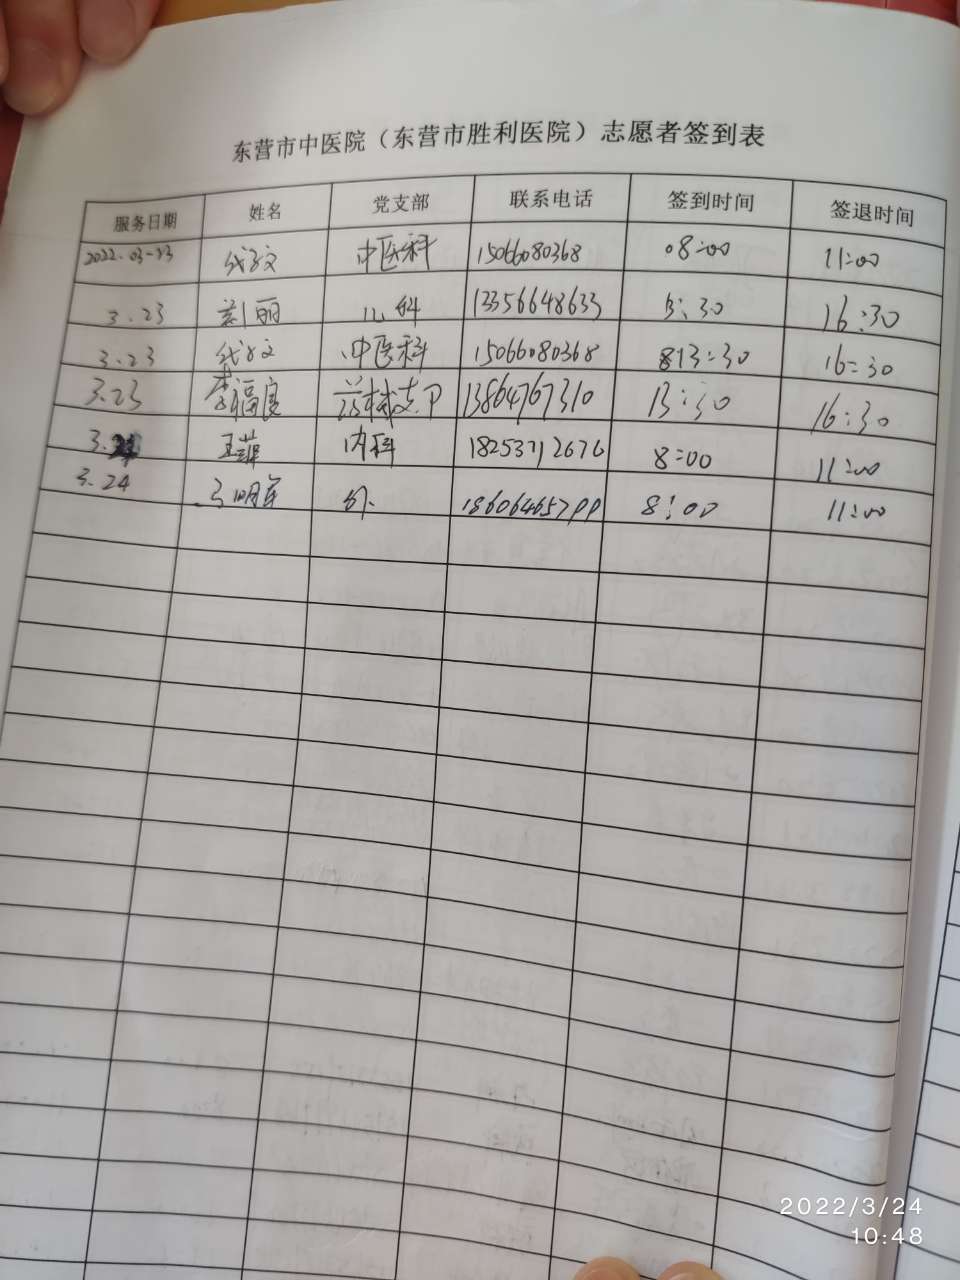 东营市中医院（东营市胜利医院）志愿者签到表
服务日期 姓名 党支部 联系电话 签到时间 签退时间
2022.03-23 中医科 15066080368 08:00 11:00
3.23 儿科 13356648633 16:30
3.23 中医科 15066080368 13:30 16:30
3.23 李福良 13864767310 13:30 16:30
3. 内科 8:00 11:00
3.24 外 8:00 11:00
2022/3/24
10:48